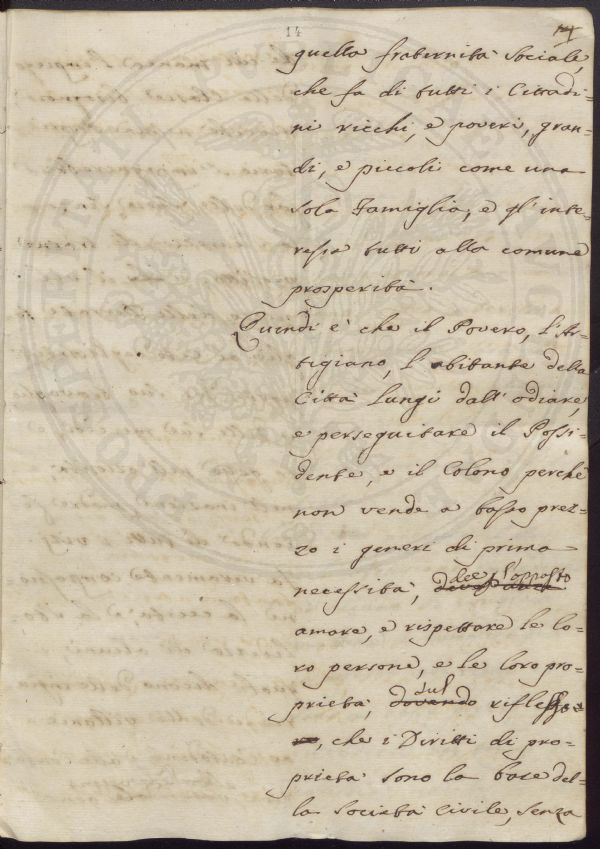 14
14
quella fraternità Sociale,
che fa di tutti i Cittadi=
ni ricchi, e poveri, gran=
di, e piccoli come una
sola Famiglia, e gl'inte=
ressa tutti alla comune
prosperità.
Quindi è che il Povero, l'Ar=
tigiano, l'abitante della
Città lungi dall'odiare,
e perseguitare il Possi=
dente, e il Colono perchè
non vende a basso prez=
zo i generi di prima
necessità, dee l'opposto
amare, e rispettare le lo=
ro persone, e le loro pro=
prietà, dovendo sul riflesso
, che i Diritti di pro=
prietà sono la base del=
la Società Civile, senza